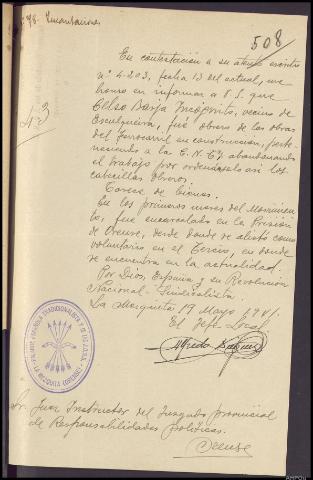 508
43
En contestación a su atento escrito
nº 4.203, fecha 13 del actual, me
honro en informar a V.S. que
Celso Barja Incógnito, vecino de
Esculqueira, fué obrero de las obras
del ferrocarril en construcción, perte-
neciendo a la C.N.T. abandonando
el trabajo por ordenárselo así los
cabecillas obreros.
Carece de bienes.
En los primeros meses del Movimien
to, fué encarcelado en la Prisión
de Orense, desde donde se alistó como
voluntario en el Tercio, en donde
se encuentra en la actualidad.
Por Dios, España y su Revolución
Nacional-Sindicalista.
La Mezquita 17 Mayo 1941.
El Jefe Local
Alfredo
FALANGE ESPAÑOLA TRADICIONALISTA Y DE LAS J.O.N.S.
LA MEZQUITA (ORENSE)
Sr. Juez Instructor del Juzgado provincial
de Responsabilidades políticas.
Orense